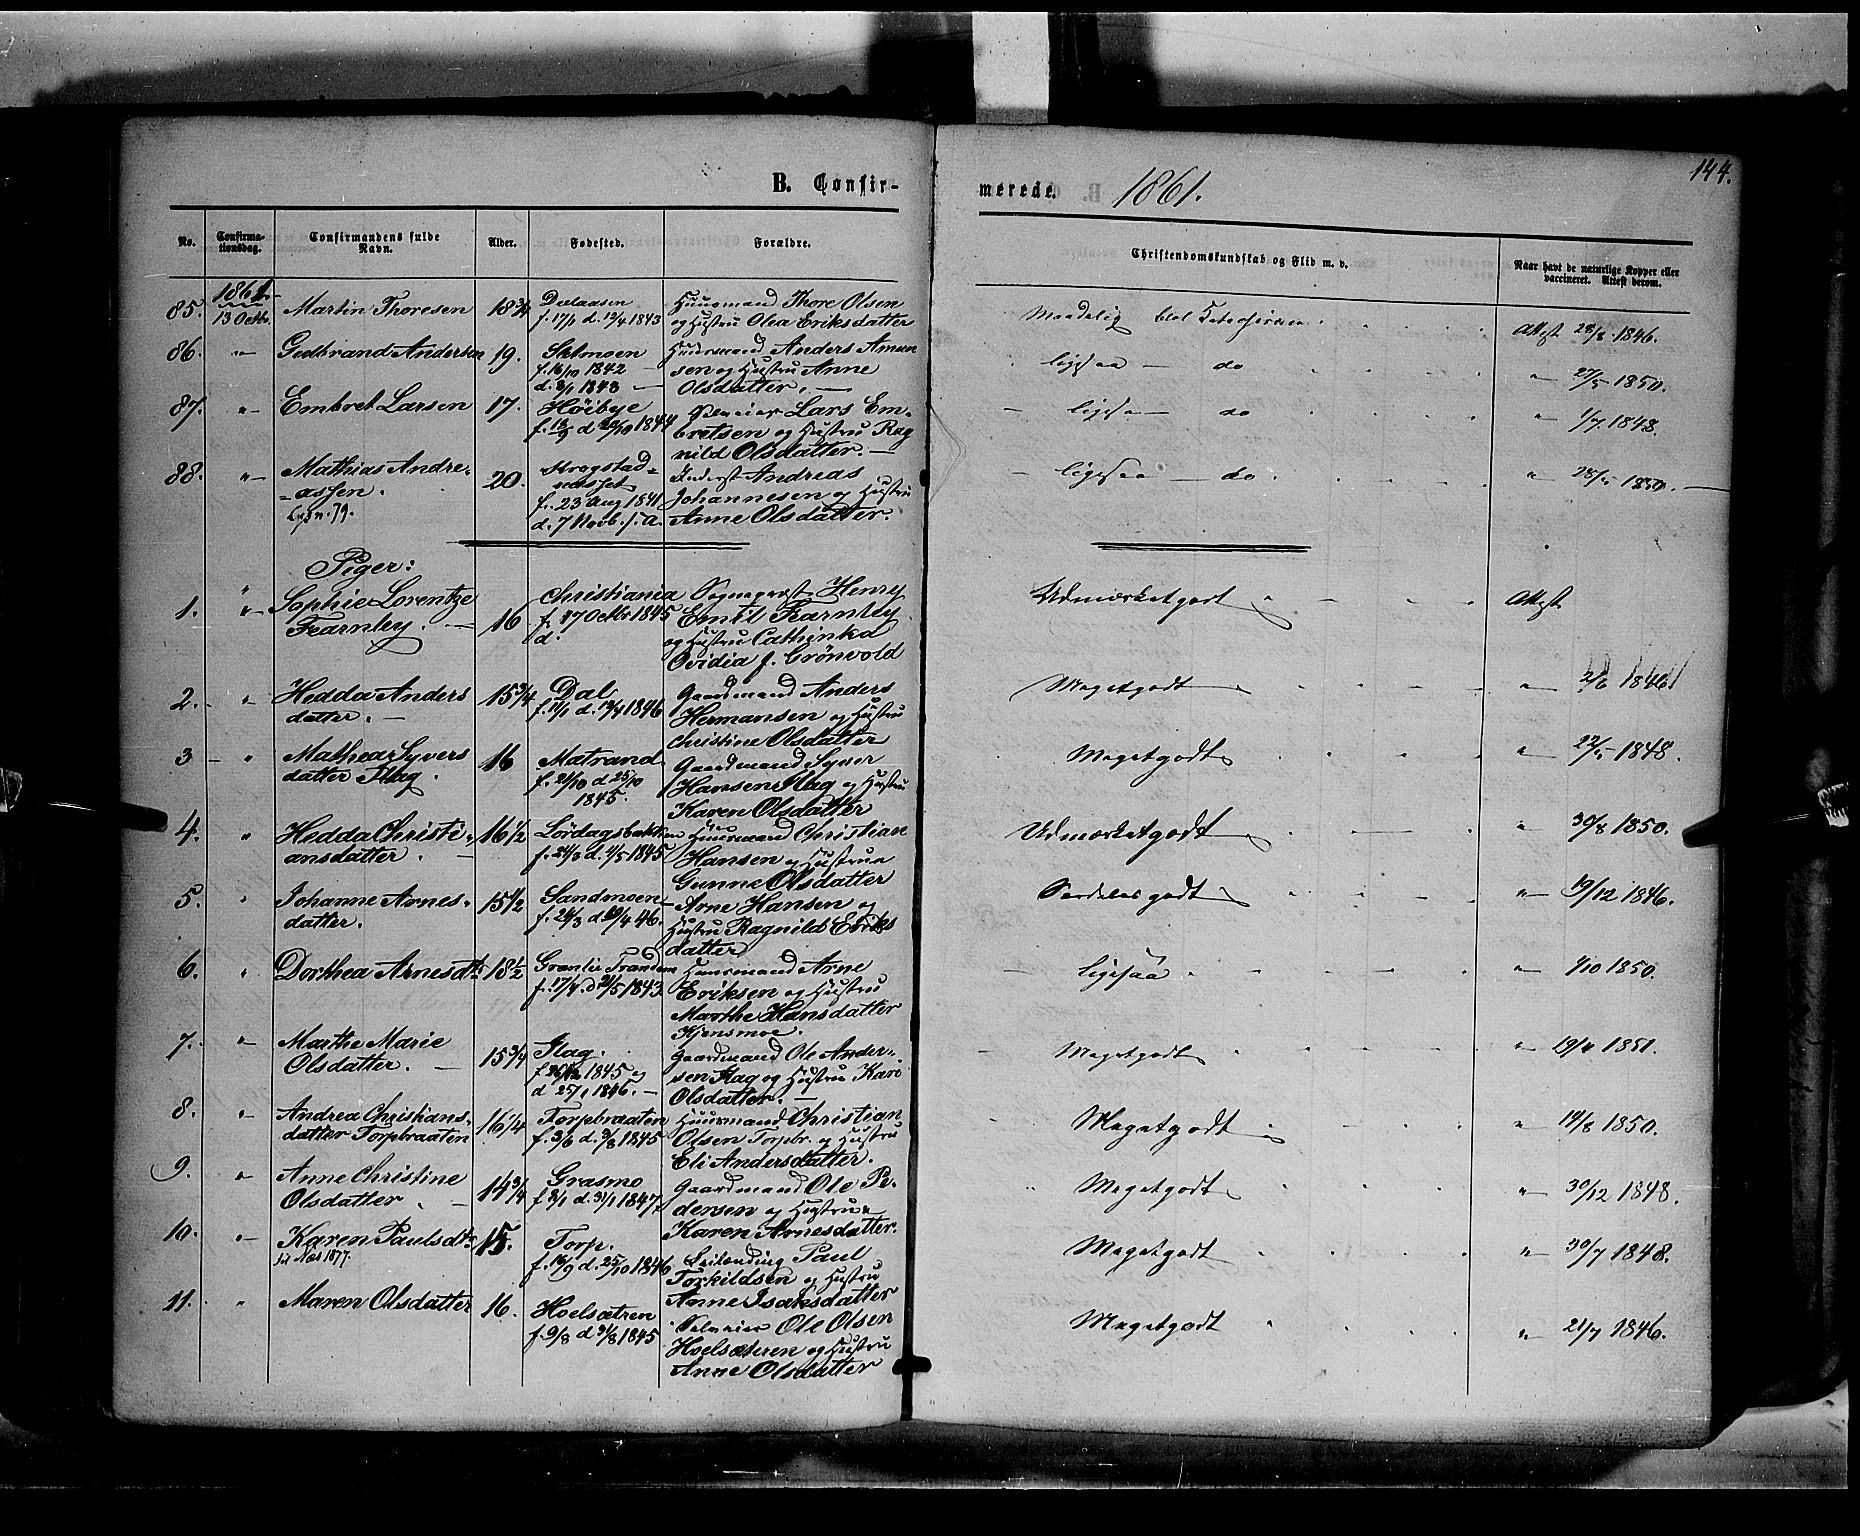 144.
B. Confir-
merede. 1861.
No.
Confirma-
tionsdag.
Confirmandens fulde
Navn.
Alder.
Fødested.
Forældre.
Christendomskundskab og Flid m. v.
Naar havt de naturlige Kopper eller
vaccineret. Attest derom.
1861
85. 13 Octbr. Martin Thoresen 18¾
f. 17/1 d. 12/4 1843
Huusmand Thore Olsen
og Hustru Olea Eriksdatter
Maadelig
Attest 28/8 1846.
86. " Gudbrand Andersen 19.
f. 16/10 1842
d. 8/1 1843
Huusmand Anders Amun
sen og Hustru Anne
Olsdatter.
ligesaa do
" 27/5 1850.
87. " Embret Larsen 17. Høibye
Selveier Lars Em-
bretsen og Hustru Rag
nild Olsdatter.
ligesaa do
" 1/7 1848.
88. " Mathias Andre-
assen. 20.
f. 23 Aug 1841
d. 7 Novb. s. a.
Inderst Andreas
Johannesen og Hustru
Anne Olsdatter.
ligesaa do.
" 28/5 1850.
Piger:
1. " Sophie Lorentze
Fearnley. 16 Christiania
f. 17 Octbr 1845
d.
Sognepræst Henry
Emil Fearnley
og Hustru Cathinka
Ovidia f. Grönvold
Udmærket godt
Attest
2. " Hedda Anders
datter. 15¾ Dal
f. 11/1 d. 13/4 1846
Gaardmand Anders
Hermansen og Hustru
Christine Olsdatter
Meget godt
" 2/6 1846
3 " Mathea Syvers
datter Flag. 16 Matrand
f. 21/10 d 25/10
1845.
Gaardmand Syver
Hansen Flag og Hustru
Karen Olsdatter
Meget godt
" 22/5 1848.
4. " Hedda Christi-
ansdatter. 16½ Lørdagsbakken
f. 24/3 d. 1/5 1845
Huusmand Christian
Hansen og Hustrue
Gunne Olsdatter
Udmærket godt
" 30/8 1850.
5. " Johanne Arnes-
datter. 15½ Sandmoen
f. 24/3 d. 19/4 46.
Arne Hansen og
Hustru Ragnild Eriks
datter
Særdeles godt
" 19/12 1846.
6. " Dorthea Arnesdt. 18½ Grønlie Trandem
f. 17/4 d 21/5 1843
Huusmand Arne
Eriksen og Hustru
Marthe Hansdatter
Kjensmoe.
ligesaa
" 1/10 1850.
7. " Marthe Marie
Olsdatter. 15¾ Flag.
f. 26/12 1845 og
d 25/1 1846.
Gaardmand Ole Ander-
sen Flag og Hustru Kari
Olsdatter.
Meget godt
" 1851.
8. " Andrea Christians-
datter Torpbraaten 16¼ Torpbraaten
f. 3/6 d. 3/8 1845
Huusmand Christian
Olsen Torpbr. og Hustru
Eli Andersdatter.
Meget godt
" 14/8 1850.
9. " Anne Christine
Olsdatter 14¾ Grasmo
f. 2/1 d. 31/1 1847
Gaardmand Ole Pe-
dersen og Hustrue
Karen Arnesdatter.
Meget godt
" 30/12 1848.
10. " Karen Paulsdt. 15. Torp.
til Næs 1877.
f. 16/9 d. 25/10 1846
Leilending Paul
Torkildsen og Hustru
Anne Isaksdatter
Meget godt
" 30/7 1848.
11. " Maren Olsdatter 16. Hoelsætren
f. 9/8 d 31/8 1845
Selveier Ole Olsen
Hoelsæteren og Hustru
Anne Olsdatter
Meget godt
" 21/7 1846.